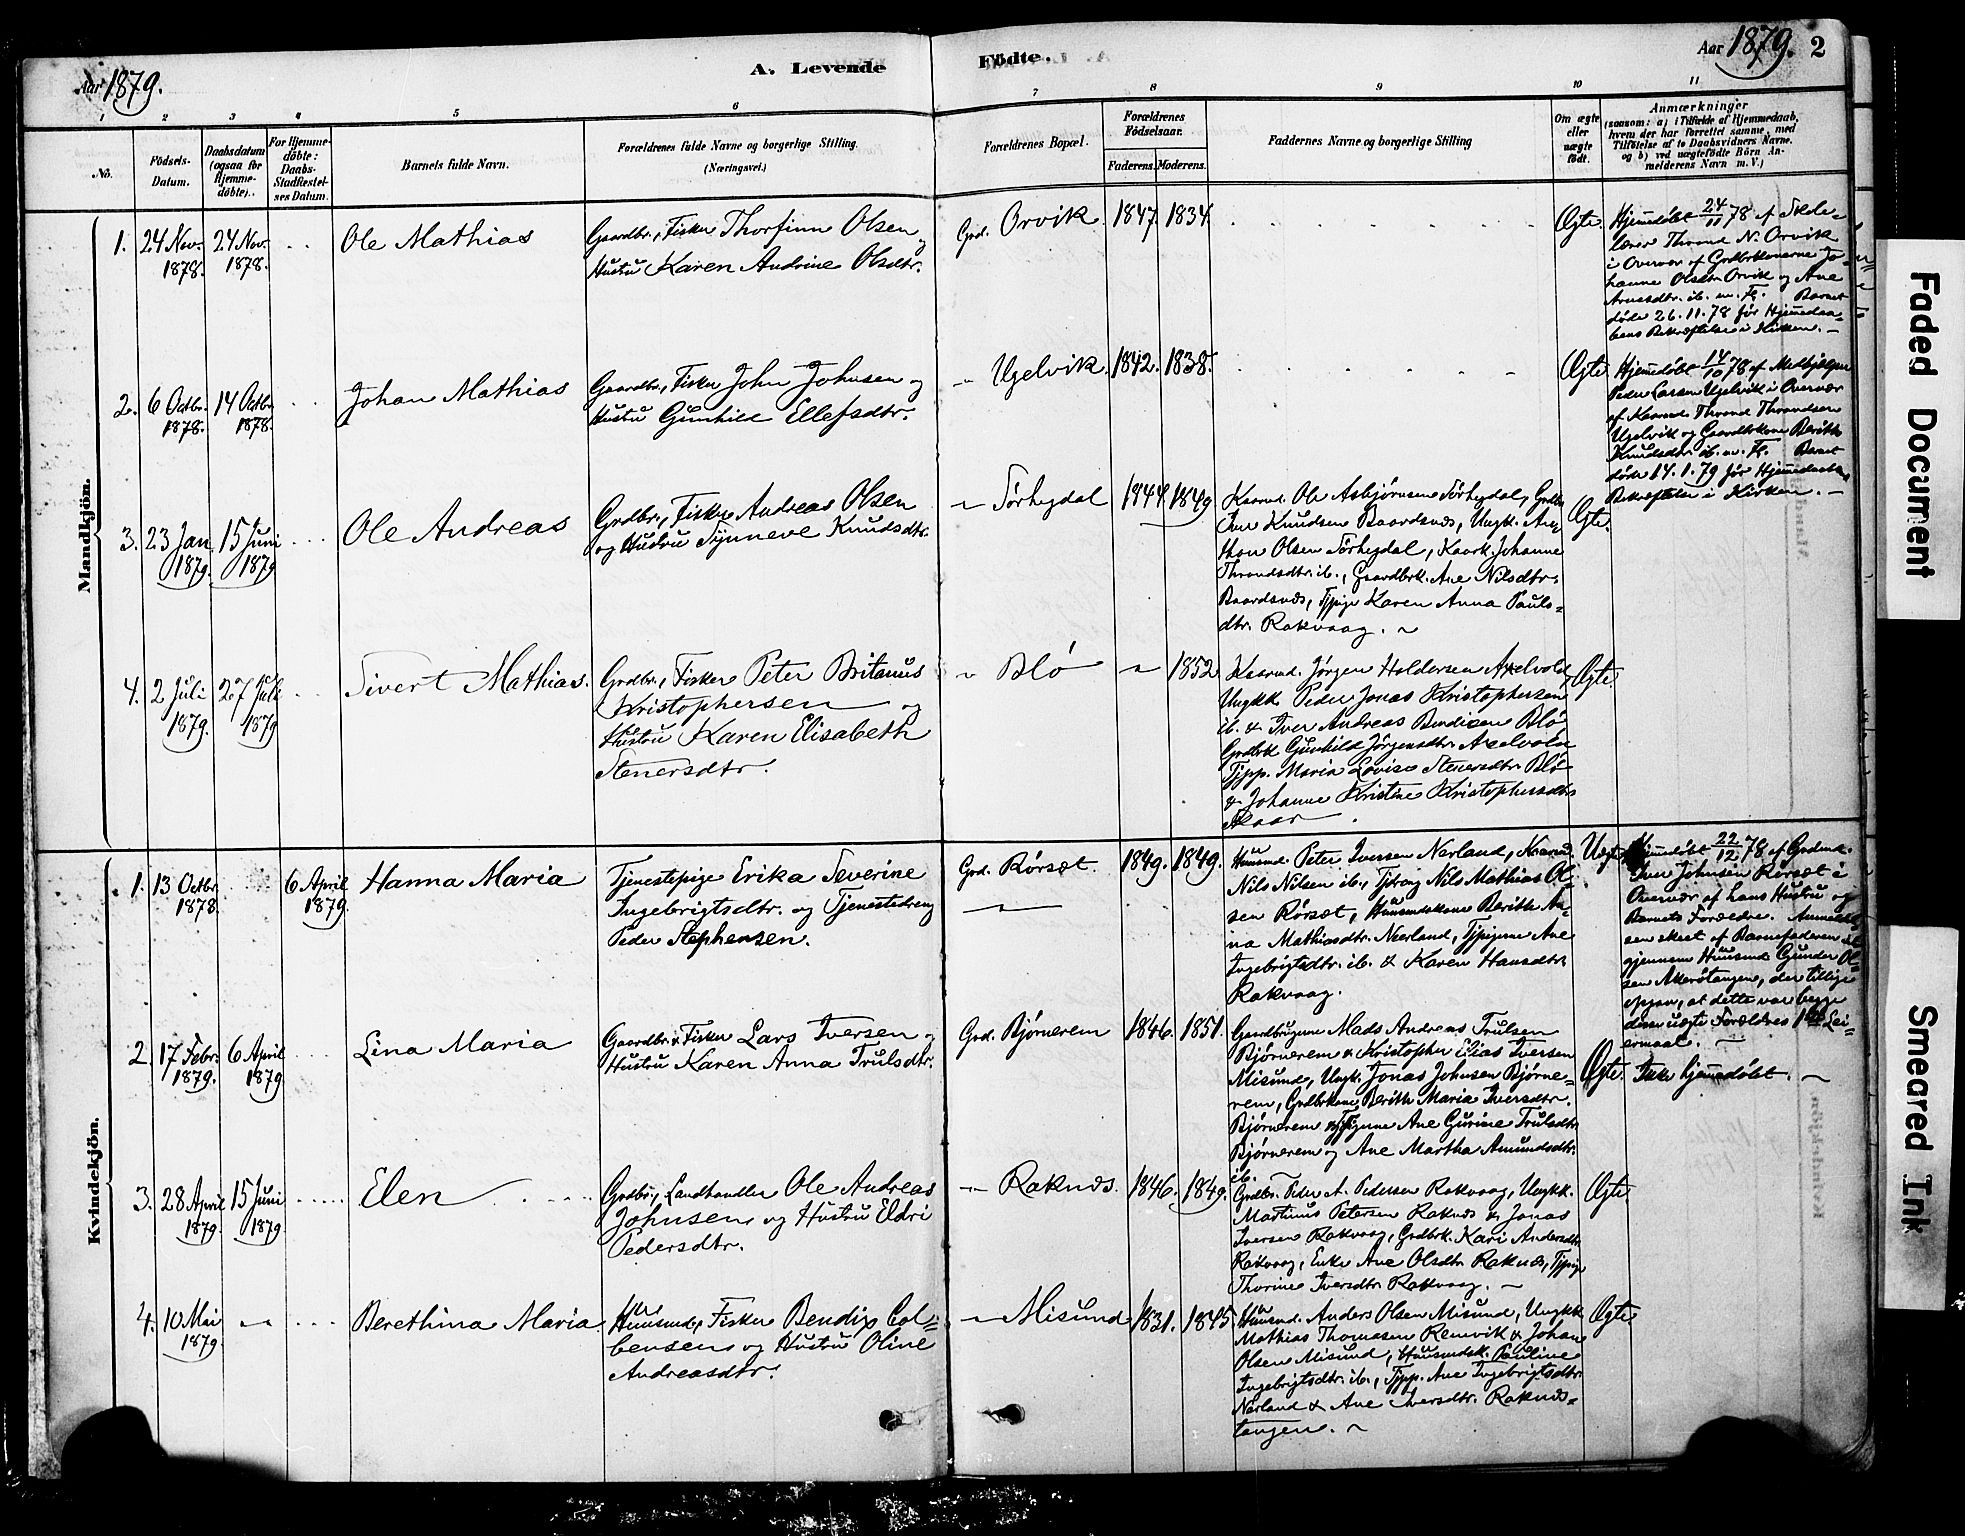 Aar 1879.
A. Levende
Födte.
Aar 1879. 2
1 2 3 4 5 6 7 8 9 10 11
No.
Födsels-
Datum.
Daabsdatum
(ogsaa for
Hjemme-
döbte).
For Hjemme-
döbte:
Daabs-
Stadfæstel-
ses Datum.
Barnets fulde Navn.
Forældrenes fulde Navne og borgerlige Stilling.
(Næringsvei.)
Forældrenes Bopæl.
Forældrenes
Födselsaar.
Faderens. Moderens.
Faddernes Navne og borgerlige Stilling
Om ægte
eller
uægte
födt.
Anmærkninger
(saasom: a) i Tilfælde af Hjemmedaab,
hvem der har forrettet samme, med
Tilföielse af to Daabsvidners Navne.
og b) ved uægtefödte Börn An-
melderens Navn m. V.)
Mandkjön.
1. 24 Nov.
1878.
24 Nov.
1878.
Ole Mathias
Gaardbr., Fisker Thorfinn Olsen og
Hustru Karen Andrine Olsdtr.
Grd. Orvik 1847. 1834.
Ægte.
Hjemdøbt 24/11 78 af Skole-
lærer Thrond N. Orvik
i Overvær af Grdbrkonerne Jo-
hanne Olsdtr. Orvik og Ane
Arnesdtr. ib. m. Fl. Barnet
døde 26.11.78 før Hjemmedaa-
bens Bekræftelse i Kirken. —
2. 6 Octbr.
1878.
14 Octbr.
1878.
Johan Mathias
Gaardbr., Fisker John Johnsen og
Hustru Gunhild Ellefsdtr.
" Ugelvik. 1842. 1838.
Ægte.
Hjemdøbt 14/10 78 af Medhjelper
Peder Larsen Ugelvik i Overvær
af Kaarmd. Thrond Throndsen
Ugelvik og Gaardbrkone Berith
Knudsdtr. ib. m. Fl. Barnet
døde 14.1.79 før Hjemmedaabens
Bekræftelse i Kirken. —
3. 23 Jan.
1879.
15 Juni
1879
Ole Andreas
Grdbr., Fisker Andreas Olsen
og Hustru Synneve Knudsdtr.
" Sørhegdal 1844. 1849
Kaarmd. Ole Asbjørnsen Sørhegdal, Grdbr.
Iver Knudsen Baardsnæs, Ungk. An-
thon Olsen Sørhegdal, Kaark. Johanne
Throndsdtr. ib., Gaardbrk. Ane Nilsdtr.
Baardsnæs, Tjpige Karen Anna Pauls-
dtr. Rakvaag. ~
Ægte.
4. 2 Juli
1879.
27 Juli
1879
Sivert Mathias.
Grdbr., Fisker Peter Britanus
Kristophersen og
Hustru Karen Elisabeth
Stenersdtr.
" Blø " 1852
Kaarmd. Jørgen Haldorsen Axelvold,
Ungkk. Peder Jonas Kristophersen
ib. & Iver Andreas Bendixen Blø
Grdbrk. Gunhild Jørgensdtr. Axelvold
Tjpp. Maria Lovise Stenersdtr. Blø
& Johanne Kristine Kristophersdtr.
Ægte.
Kvindekjön.
1. 13 Octbr.
1878.
6 April
1879.
Hanna Maria
Tjenestepige Erika Severine
Ingebrigtsdtr. og Tjenestedreng
Peder Stephensen.
Grd. Rørsæt. 1849. 1849.
Huusmd. Peter Iversen Nerland, Kaarmd.
Nils Nilsen ib., Tjdreng Nils Mathias Ol-
sen Rørsæt, Huusmdskone Berith An-
na Mathiasdtr. Neerland, Tjpigerne Ane
Ingebrigtsdtr. ib. & Karen Hansdtr.
Rakvaag.
Uægte
Hjemdøbt 22/12 78 af Grdmd.
Iver Johnsen Rørsæt i
Overvær af hans Hustru og
Barnets Forældre. Anmeldel-
sen skeet af Barnefaderen selv
gjennem Huusmd. Gunder Ol-
sen Akerøtangen, der tillige
opgav, at dette var begge
disse uægte Forældres 1ste Lei-
ermaal. —
2. 17 Febr.
1879.
6 April
1879
Lina Maria
Gaardbr. & Fisker Lars Iversen og
Hustru Karen Anna Trulsdtr.
Grd. Bjørnerem 1846. 1851.
Gaardbrugerne Mads Andreas Trulsen
Bjørnerem & Kristopher Elias Iversen
Misund, Ungk. Jonas Johnsen Bjørne-
rem, Grdbrkone Berith Maria Iversdtr.
Bjørnerem & Tjpigerne Ane Gurine Trulsdtr.
Bjørnerem og Ane Martha Amundsdtr.
ib.
Ægte.
Ikke hjemdøbt. ~
3. 28 April
1879.
15 Juni
1879.
Elen
Grdbr., Landhandler Ole Andreas
Johnsen og Hustru Eldri
Pedersdtr.
" Raknæs. 1846. 1849.
Grdbr. Peder A. Pedersen Rakvaag, Ungkk.
Martinus Petersen Raknæs & Jonas
Iversen Rakvaag, Grdbrk. Kari Andersdtr.
Rakvaag, Enke Ane Olsdtr. Raknæs, Tjpige
Thorine Iversdtr. Rakvaag. ~
Ægte
4. 10 Mai
1879
"
Berethina Maria
Huusmd., Fisker Bendix Col-
bensen og Hustru Oline
Andreasdtr.
" Misund 1831. 1845
Huusmd. Anders Olsen Misund, Ungkk.
Mathias Thomasen Remvik & Johan
Olsen Misund, Huusmdsk. Pauline
Ingebrigtsdtr. ib., Tjpp. Ane Ingebrigtsdtr.
Nerland & Ane Iversdtr. Raknæs-
tangen. ~
Ægte
Faded Document
Smeared Ink